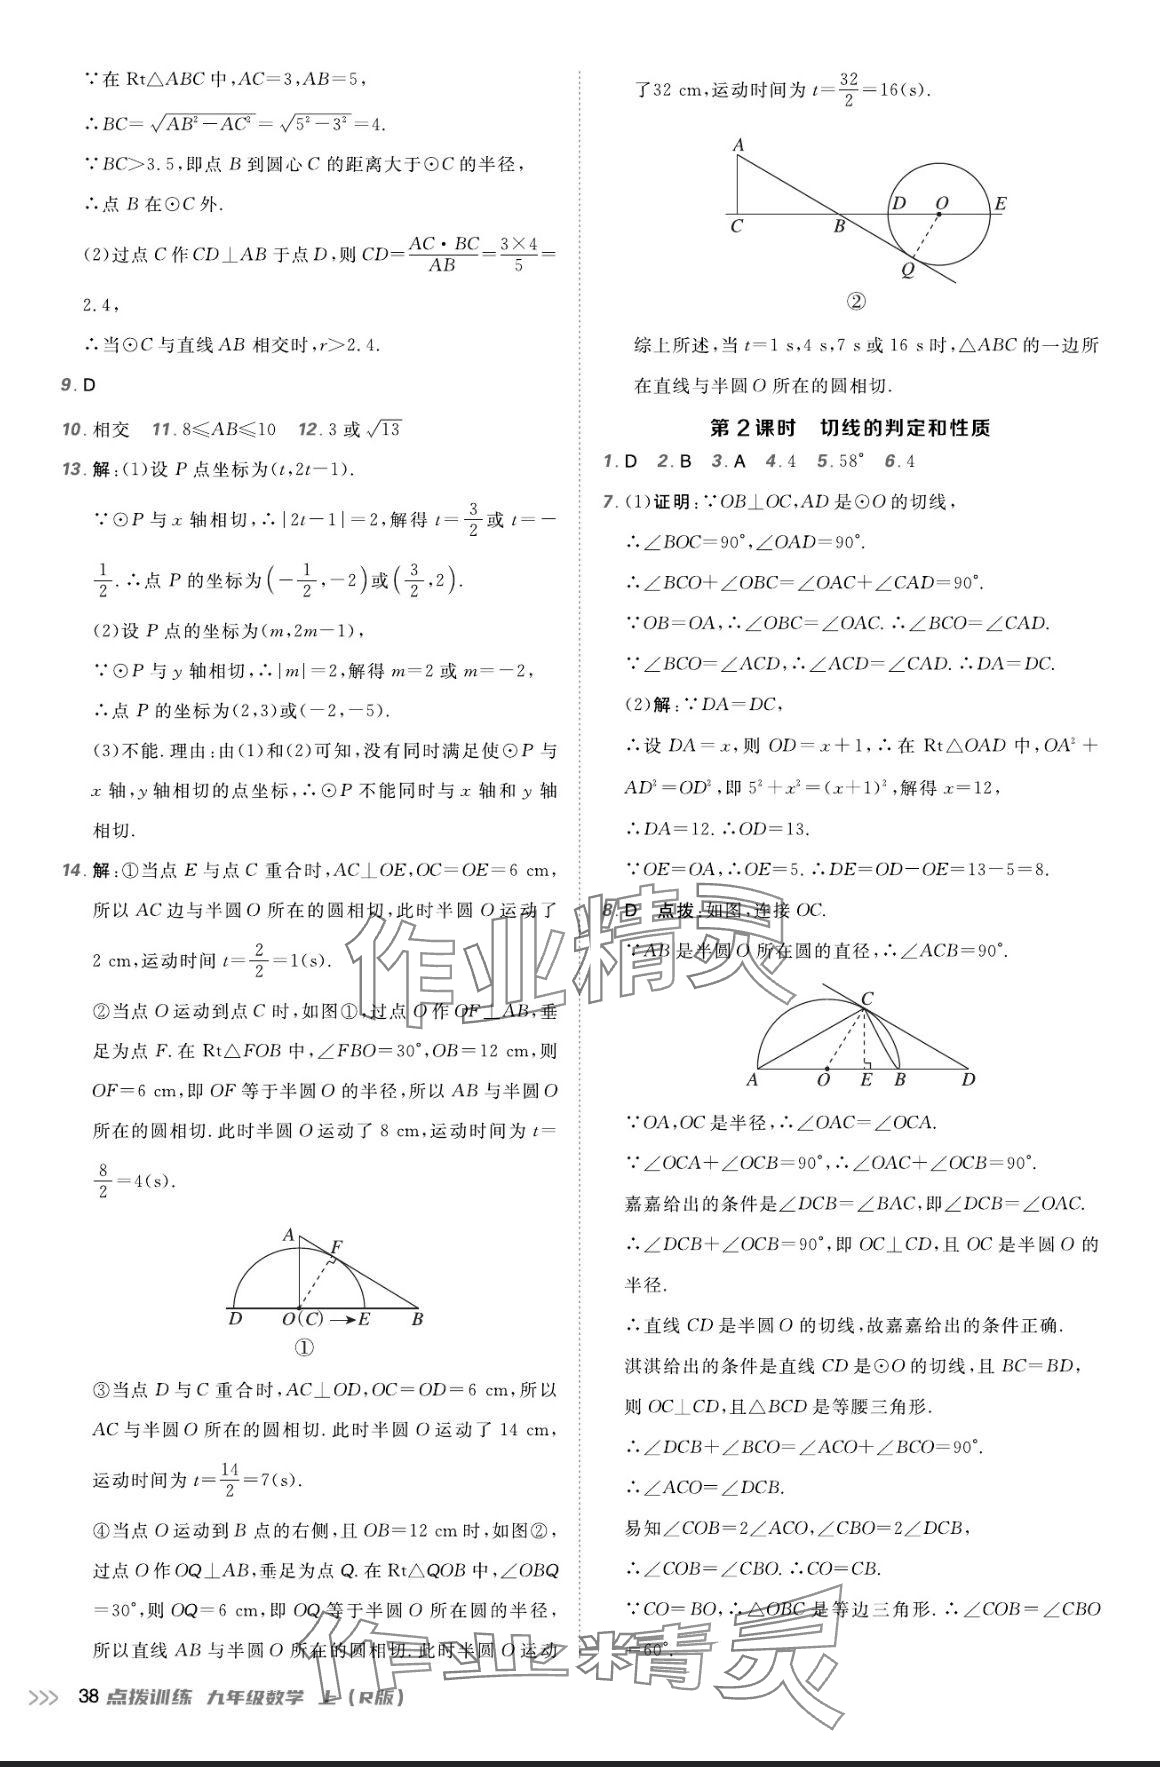 ∵在 Rt△ABC 中,AC=3,AB=5,
∴BC=√(AB²-AC²)=√(5²-3²)=4.
∵BC>3.5,即点 B 到圆心 C 的距离大于⊙C 的半径,
∴点 B 在⊙C 外.
(2)过点 C 作 CD⊥AB 于点 D,则 CD=AC·BC/AB=3×4/5=
2.4,
∴当⊙C 与直线 AB 相交时,r>2.4.
9.D
10.相交 11.8≤AB≤10 12.3 或 √13
13.解:(1)设 P 点坐标为(t,2t-1).
∵⊙P 与 x 轴相切,∴|2t-1|=2,解得 t=3/2或 t=-
1/2.∴点 P 的坐标为(-1/2,-2)或(3/2,2).
(2)设 P 点的坐标为(m,2m-1),
∵⊙P 与 y 轴相切,∴|m|=2,解得 m=2 或 m=-2,
∴点 P 的坐标为(2,3)或(-2,-5).
(3)不能.理由:由(1)和(2)可知,没有同时满足使⊙P 与
x 轴,y 轴相切的点坐标,∴⊙P 不能同时与 x 轴和 y 轴
相切.
14.解:①当点 E 与点 C 重合时,AC⊥OE,OC=OE=6 cm,
所以 AC 边与半圆 O 所在的圆相切,此时半圆 O 运动了
2 cm,运动时间 t=2/2=1(s).
②当点 O 运动到点 C 时,如图①,过点 O 作 OF⊥AB,垂
足为点 F.在 Rt△FOB 中,∠FBO=30°,OB=12 cm,则
OF=6 cm,即 OF 等于半圆 O 的半径,所以 AB 与半圆 O
所在的圆相切.此时半圆 O 运动了 8 cm,运动时间为 t=
8/2=4(s).
A F
D O(C) E B
①
③当点 D 与 C 重合时,AC⊥OD,OC=OD=6 cm,所以
AC 与半圆 O 所在的圆相切.此时半圆 O 运动了 14 cm,
运动时间为 t=14/2=7(s).
④当点 O 运动到 B 点的右侧,且 OB=12 cm 时,如图②,
过点 O 作 OQ⊥AB,垂足为点 Q.在 Rt△QOB 中,∠OBQ
=30°,则 OQ=6 cm,即 OQ 等于半圆 O 所在圆的半径,
所以直线 AB 与半圆 O 所在的圆相切.此时半圆 O 运动
了32 cm,运动时间为 t=32/2=16(s).
A
C B D O E
Q
②
综上所述,当 t=1 s,4 s,7 s 或 16 s 时,△ABC 的一边所
在直线与半圆 O 所在的圆相切.
第 2 课时 切线的判定和性质
1.D 2.B 3.A 4.4 5.58° 6.4
7.(1)证明:∵OB⊥OC,AD 是⊙O 的切线,
∴∠BOC=90°,∠OAD=90°.
∴∠BCO+∠OBC=∠OAC+∠CAD=90°.
∵OB=OA,∴∠OBC=∠OAC.∴∠BCO=∠CAD.
∵∠BCO=∠ACD,∴∠ACD=∠CAD.∴DA=DC.
(2)解:∵DA=DC,
∴设 DA=x,则 OD=x+1,∴在 Rt△OAD 中,OA²+
AD²=OD²,即 5²+x²=(x+1)²,解得 x=12,
∴DA=12.∴OD=13.
∵OE=OA,∴OE=5.∴DE=OD-OE=13-5=8.
8.D 点拨:如图,连接 OC.
∵AB 是半圆 O 所在圆的直径,∴∠ACB=90°.
C
A O E B D
∵OA,OC 是半径,∴∠OAC=∠OCA.
∵∠OCA+∠OCB=90°,∴∠OAC+∠OCB=90°.
嘉嘉给出的条件是∠DCB=∠BAC,即∠DCB=∠OAC.
∴∠DCB+∠OCB=90°,即 OC⊥CD,且 OC 是半圆 O 的
半径.
∴直线 CD 是半圆 O 的切线,故嘉嘉给出的条件正确.
淇淇给出的条件是直线 CD 是⊙O 的切线,且 BC=BD,
则 OC⊥CD,且△BCD 是等腰三角形.
∴∠DCB+∠BCO=∠ACO+∠BCO=90°.
∴∠ACO=∠DCB.
易知∠COB=2∠ACO,∠CBO=2∠DCB,
∴∠COB=∠CBO.∴CO=CB.
∵CO=BO,∴△OBC 是等边三角形.∴∠COB=∠CBO
=60°.
作业精灵
作业精灵
38 点拨训练 九年级数学 上(R版)